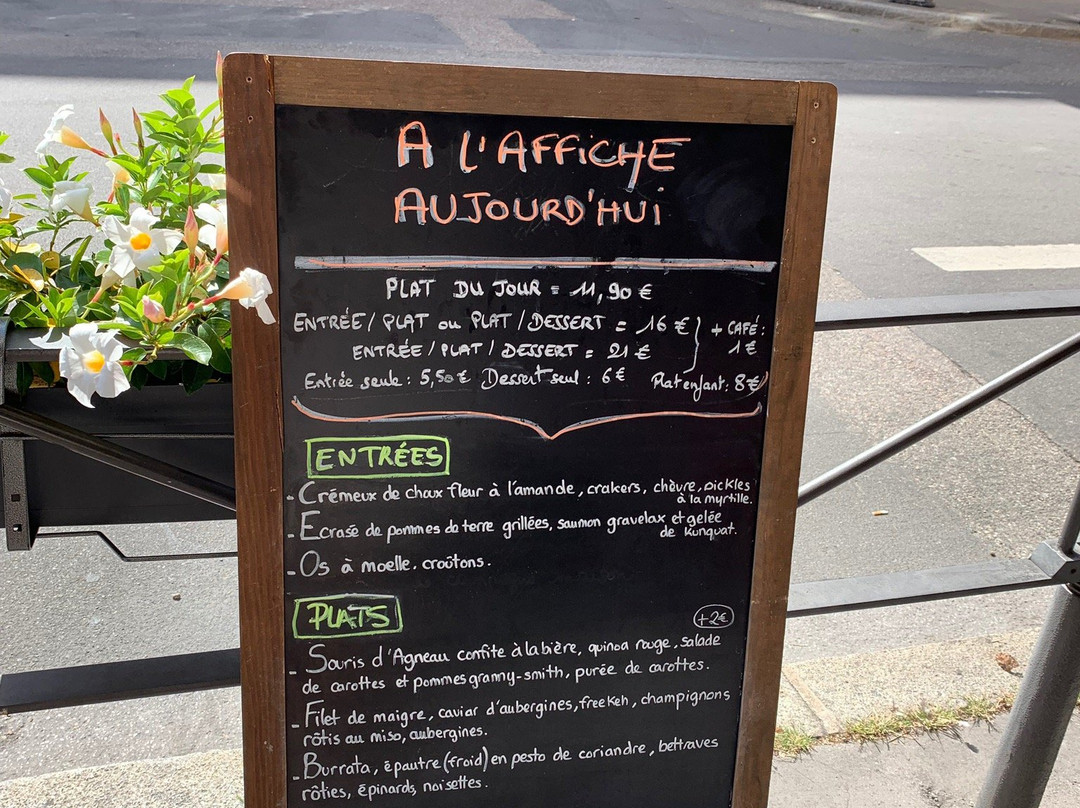 A L'AFFiCHE
AUJOURD'HUi
PLAT DU JOUR = 11,90 €
ENTRÉE / PLAT ou PLAT / DESSERT = 16 € + CAFÉ :
ENTRÉE / PLAT / DESSERT = 21 € 1 €
Entrée seule : 5,50 € Dessert seul : 6 € Plat enfant : 8 €
ENTRÉES
- Crémeux de choux fleur à l'amande, crakers, chèvre, pickles
à la myrtille.
- Ecrasé de pommes de terre grillées, saumon gravelax et gelée
de kunquat.
- Os à moelle, croûtons.
PLATS
+2€
- Souris d'Agneau confite à la bière, quinoa rouge, salade
de carottes et pommes granny-smith, purée de carottes.
- Filet de maigre, caviar d'aubergines, freekeh, champignons
rôtis au miso, aubergines.
- Burrata, épautre (froid) en pesto de coriandre, bettraves
rôties, épinards, noisettes.